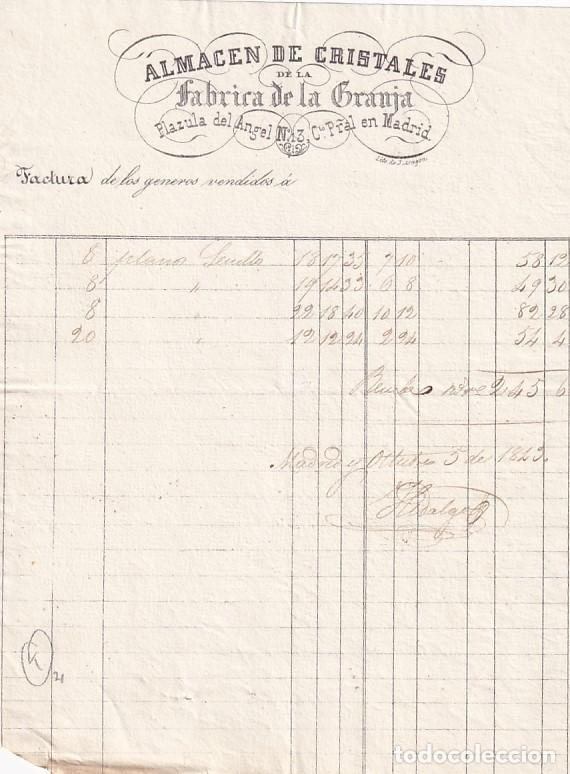 ALMACEN DE CRISTALES
DE LA
Fabrica de la Granja
Plazula del Angel Nº 13, Cto Pral en Madrid.
Lito. de J. Aragon
Factura de los generos vendidos á
8 plano 18 17 35 7 10 58 12
8 " 19 14 33 6 8 49 30
8 " 22 18 40 10 12 82 28
20 " 12 12 24 2 24 54 4
245 6
Madrid y Octubre 5 de 1843.
Hidalgo
21
todocoleccion
todocoleccion.net